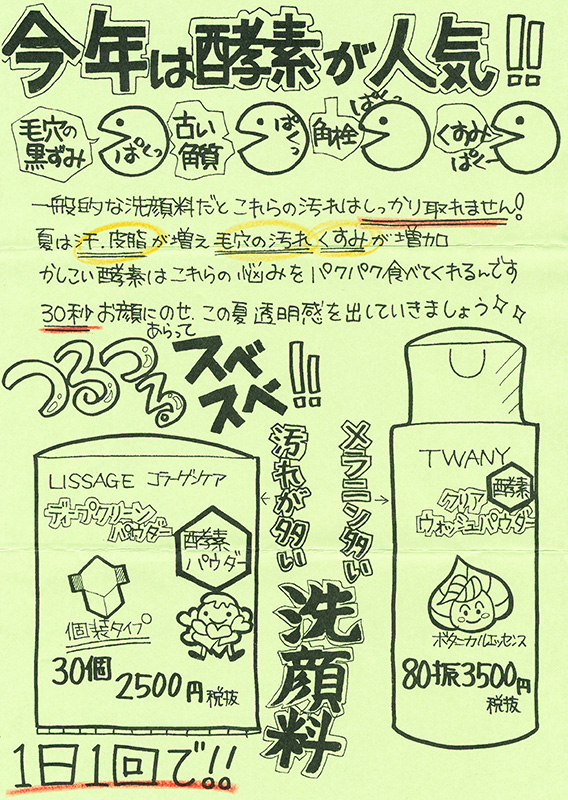 今年は酵素が人気!!
毛穴の
黒ずみ
ぱくっ
古い
角質
ぱくっ
角栓
ぱくっ
くすみ
ぱくー
一般的な洗顔料だとこれらの汚れはしっかり取れません!
夏は汗、皮脂が増え毛穴の汚れくすみが増加
かしこい酵素はこれらの悩みをパクパク食べてくれるんです
30秒お顔にのせ、この夏透明感を出していきましょう
あらって
つるつる
スベ
スベ!!
LISSAGE コラーゲンケア
ディープクリーン
パウダー
酵素
パウダー
個装タイプ
30個
2500円
税抜
汚れが多い
メラニン多い
洗顔料
TWANY
酵素
クリア
ウォッシュパウダー
ボタニカルエッセンス
80振3500円
税抜
1日1回で!!